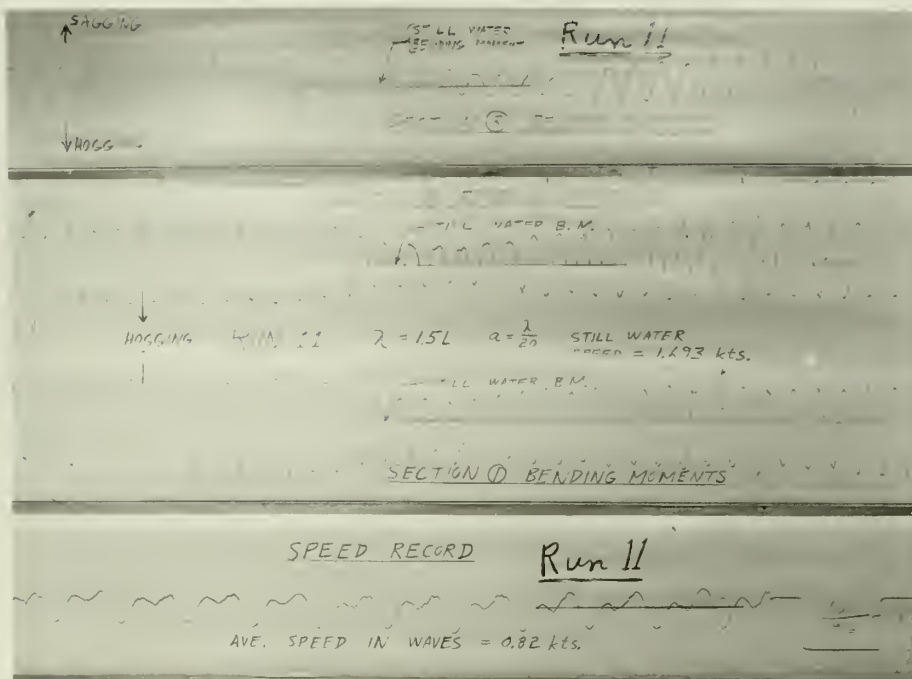 SAGGING
STILL WATER
BENDING MOMENT
Run 11
HOGG
STILL WATER B.M.
HOGGING RUN 11 λ = 1.5L a = λ/20 STILL WATER
SPEED = 1.693 kts.
STILL WATER B.M.
SECTION ① BENDING MOMENTS
SPEED RECORD Run 11
AVE. SPEED IN WAVES = 0.82 kts.